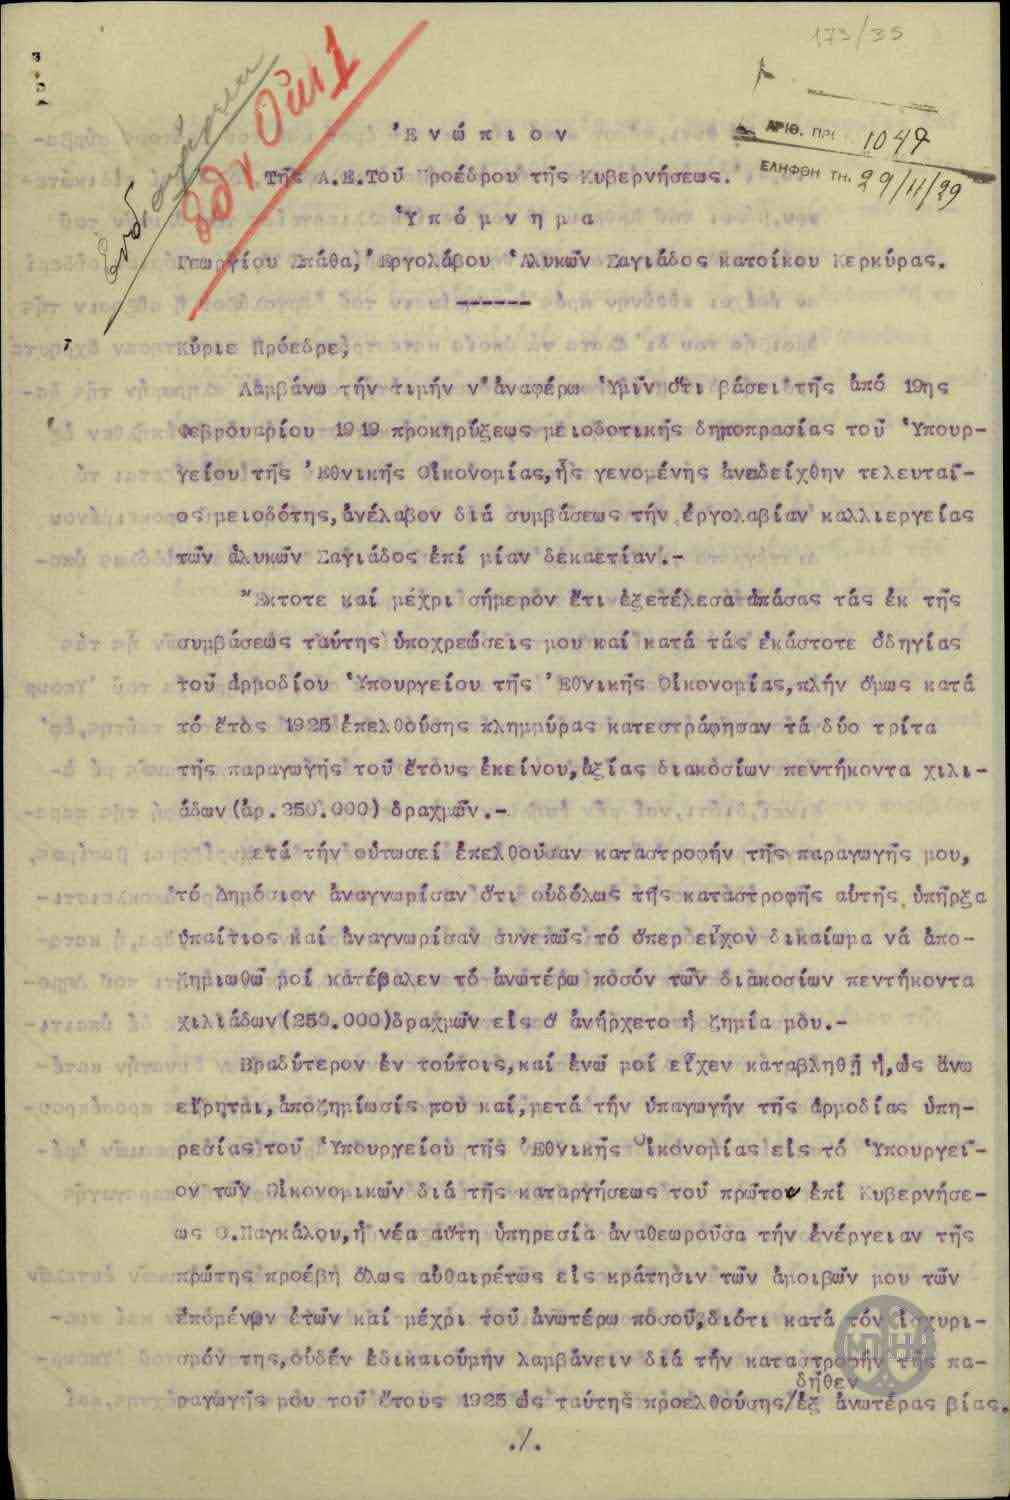 173/35
ΑΡΙΘ. ΠΡ. 1047
ΕΛΗΦΘΗ ΤΗ. 29/11/29
Ἐνώπιον
Τῆς Α.Ε.Τοῦ Προέδρου τῆς Κυβερνήσεως.
Ὑπόμνημα
Γεωργίου Σπάθα, Ἐργολάβου Ἁλυκῶν Σαγιάδος κατοίκου Κερκύρας.
-------
Κύριε Πρόεδρε,
Λαμβάνω τήν τιμήν ν' ἀναφέρω Ὑμῖν ὅτι βάσει τῆς ἀπό 19ης
Φεβρουαρίου 1919 προκηρύξεως μειοδοτικῆς δημοπρασίας τοῦ Ὑπουρ-
γείου τῆς Ἐθνικῆς Οἰκονομίας,ἧς γενομένης ἀνεδείχθην τελευταῖ-
ος μειοδότης,ἀνέλαβον διά συμβάσεως τήν ἐργολαβίαν καλλιεργείας
τῶν ἁλυκῶν Σαγιάδος ἐπί μίαν δεκαετίαν.-
Ἔκτοτε καί μέχρι σήμερον ἔτι ἐξετέλεσα ἁπάσας τάς ἐκ τῆς
συμβάσεως ταύτης ὑποχρεώσεις μου καί κατά τάς ἑκάστοτε ὁδηγίας
τοῦ ἁρμοδίου Ὑπουργείου τῆς Ἐθνικῆς Οἰκονομίας,πλήν ὅμως κατά
τό ἔτος 1925 ἐπελθούσης πλημμύρας κατεστράφησαν τά δύο τρίτα
τῆς παραγωγῆς τοῦ ἔτους ἐκείνου,ἀξίας διακοσίων πεντήκοντα χιλι-
άδων(ἀρ.250.000) δραχμῶν.-
Μετά τήν οὑτωσεί ἐπελθοῦσαν καταστροφήν τῆς παραγωγῆς μου,
τό Δημόσιον ἀναγνωρίσαν ὅτι οὐδόλως τῆς καταστροφῆς αὐτῆς ὑπῆρξα
ὑπαίτιος καί ἀναγνωρίσαν συνεπῶς τό ὅπερ εἶχον δικαίωμα νά ἀπο-
ζημιωθῶ μοί κατέβαλεν τό ἀνωτέρω ποσόν τῶν διακοσίων πεντήκοντα
χιλιάδων(250.000)δραχμῶν εἰς ὅ ἀνήρχετο ἡ ζημία μου.-
Βραδύτερον ἐν τούτοις,καί ἐνῶ μοί εἶχεν καταβληθῆ ἡ,ὡς ἄνω
εἴρηται,ἀποζημίωσίς μου καί,μετά τήν ὑπαγωγήν τῆς ἁρμοδίας ὑπη-
ρεσίας τοῦ Ὑπουργείου τῆς Ἐθνικῆς Οἰκονομίας εἰς τό Ὑπουργεῖ-
ον τῶν Οἰκονομικῶν διά τῆς καταργήσεως τοῦ πρώτου ἐπί Κυβερνήσε-
ως Θ.Παγκάλου,ἡ νέα αὕτη ὑπηρεσία ἀναθεωροῦσα τήν ἐνέργειαν τῆς
πρώτης προέβη ὅλως αὐθαιρέτως εἰς κράτησιν τῶν ἀμοιβῶν μου τῶν
ἑπομένων ἐτῶν καί μέχρι τοῦ ἀνωτέρω ποσοῦ,διότι κατά τόν ἰσχυρι-
σμόν της,οὐδέν ἐδικαιούμην λαμβάνειν διά τήν καταστροφήν τῆς πα-
δῆθεν
ραγωγῆς μου τοῦ ἔτους 1925 ὡς ταύτης προελθούσης/ἐξ ἀνωτέρας βίας.
./.